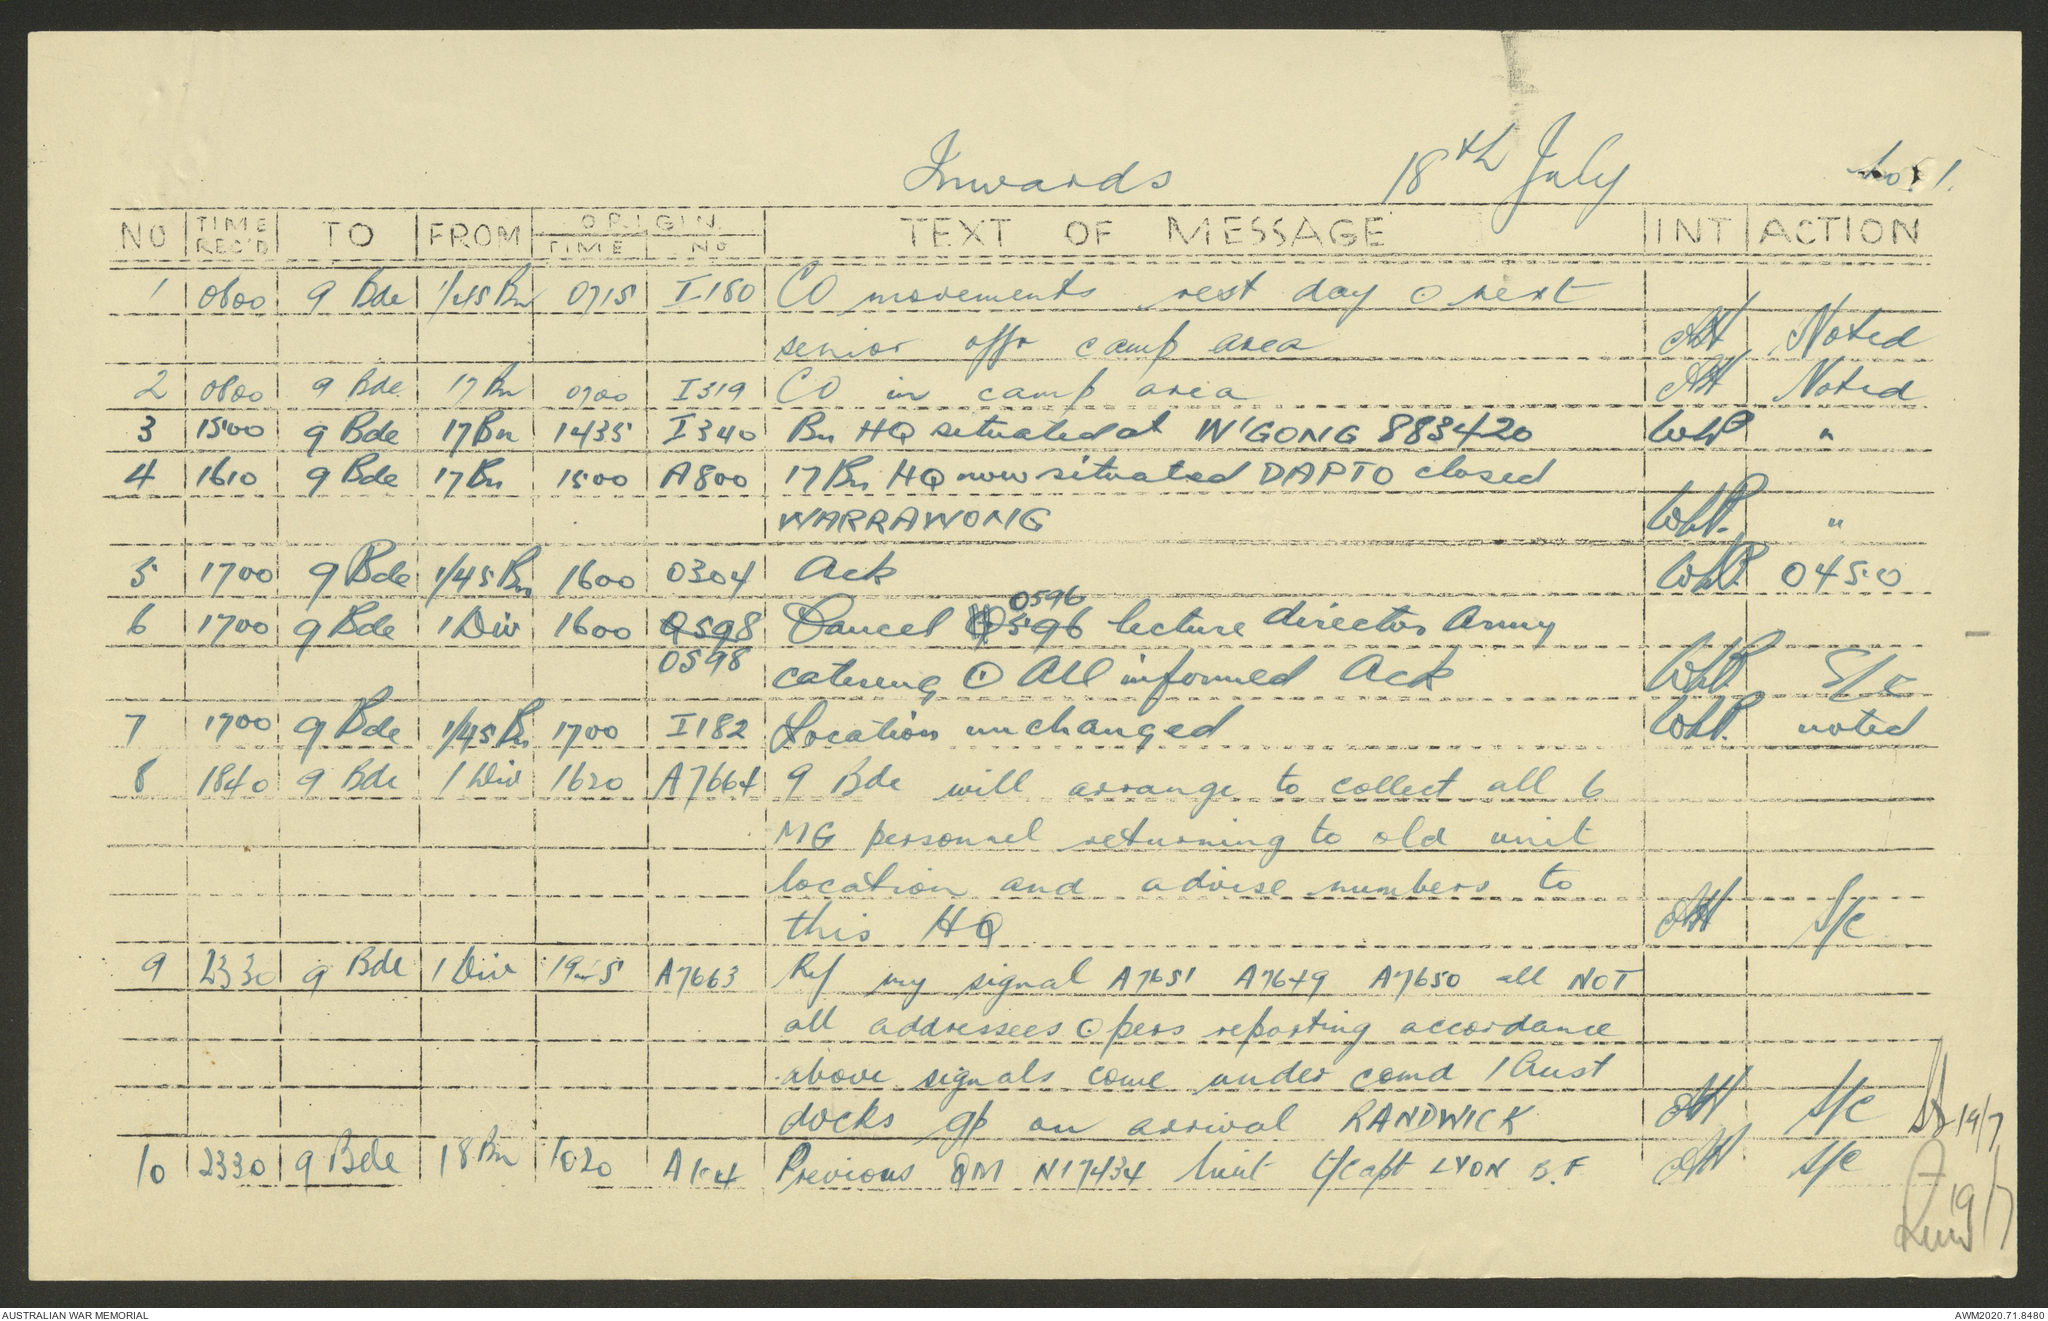 Inwards 18th July No. 1.
NO TIME REC'D TO FROM ORIGIN TIME NO TEXT OF MESSAGE INT ACTION
1 0800 9 Bde 1/45 Bn 0715 I180 CO movements rest day ⊙ next
senior offr camp area Noted
2 0800 9 Bde 17 Bn 0700 I319 CO in camp area Noted
3 1500 9 Bde 17 Bn 1435 I340 Bn HQ situated at W'GONG 883420 WHP "
4 1610 9 Bde 17 Bn 1500 A800 17 Bn HQ now situated DAPTO closed
WARRAWONG WHP. "
5 1700 9 Bde 1/45 Bn 1600 0304 Ack WHP. 0450
0596
6 1700 9 Bde 1 Div 1600 Q598 Cancel 596 lecture director Army
0598 catering ⊙ All informed Ack WHP. S/c
7 1700 9 Bde 1/45 Bn 1700 I182 Location unchanged WHP. noted
8 1840 9 Bde 1 Div 1620 A7664 9 Bde will arrange to collect all 6
MG personnel returning to old unit
location and advise numbers to
this HQ S/c
9 2330 9 Bde 1 Div 1945 A7663 Ref my signal A7651 A7649 A7650 all NOT
all addressees ⊙ pers reporting accordance
above signals come under comd 1 Aust
docks gp on arrival RANDWICK S/c 19/7
10 2330 9 Bde 18 Bn 1020 Previous QM N17434 Lieut t/Capt LYON B.F S/c
19/7
AUSTRALIAN WAR MEMORIAL AWM2020.71.8480